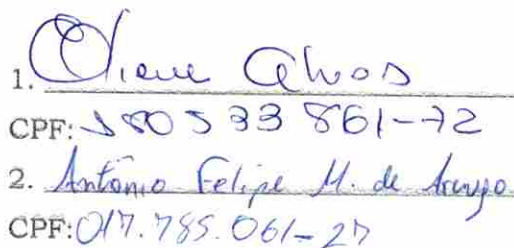 1. Eliene Alves
CPF: 580533861-72
2. Antônio Felipe M. de Araujo
CPF: 017.785.061-27